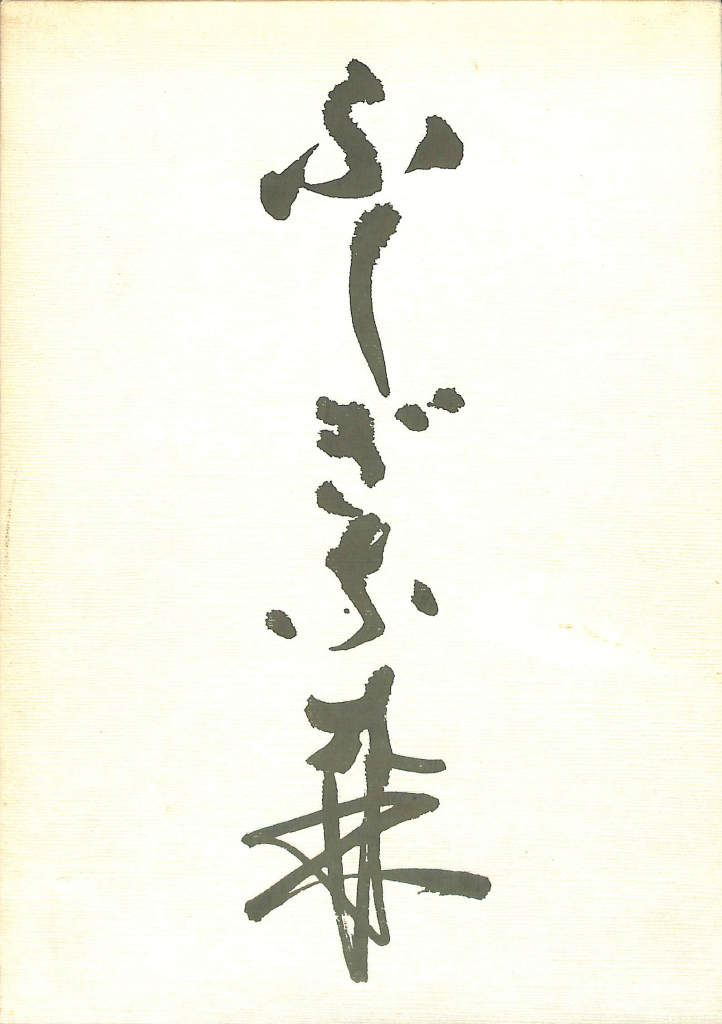 ふしぎな森